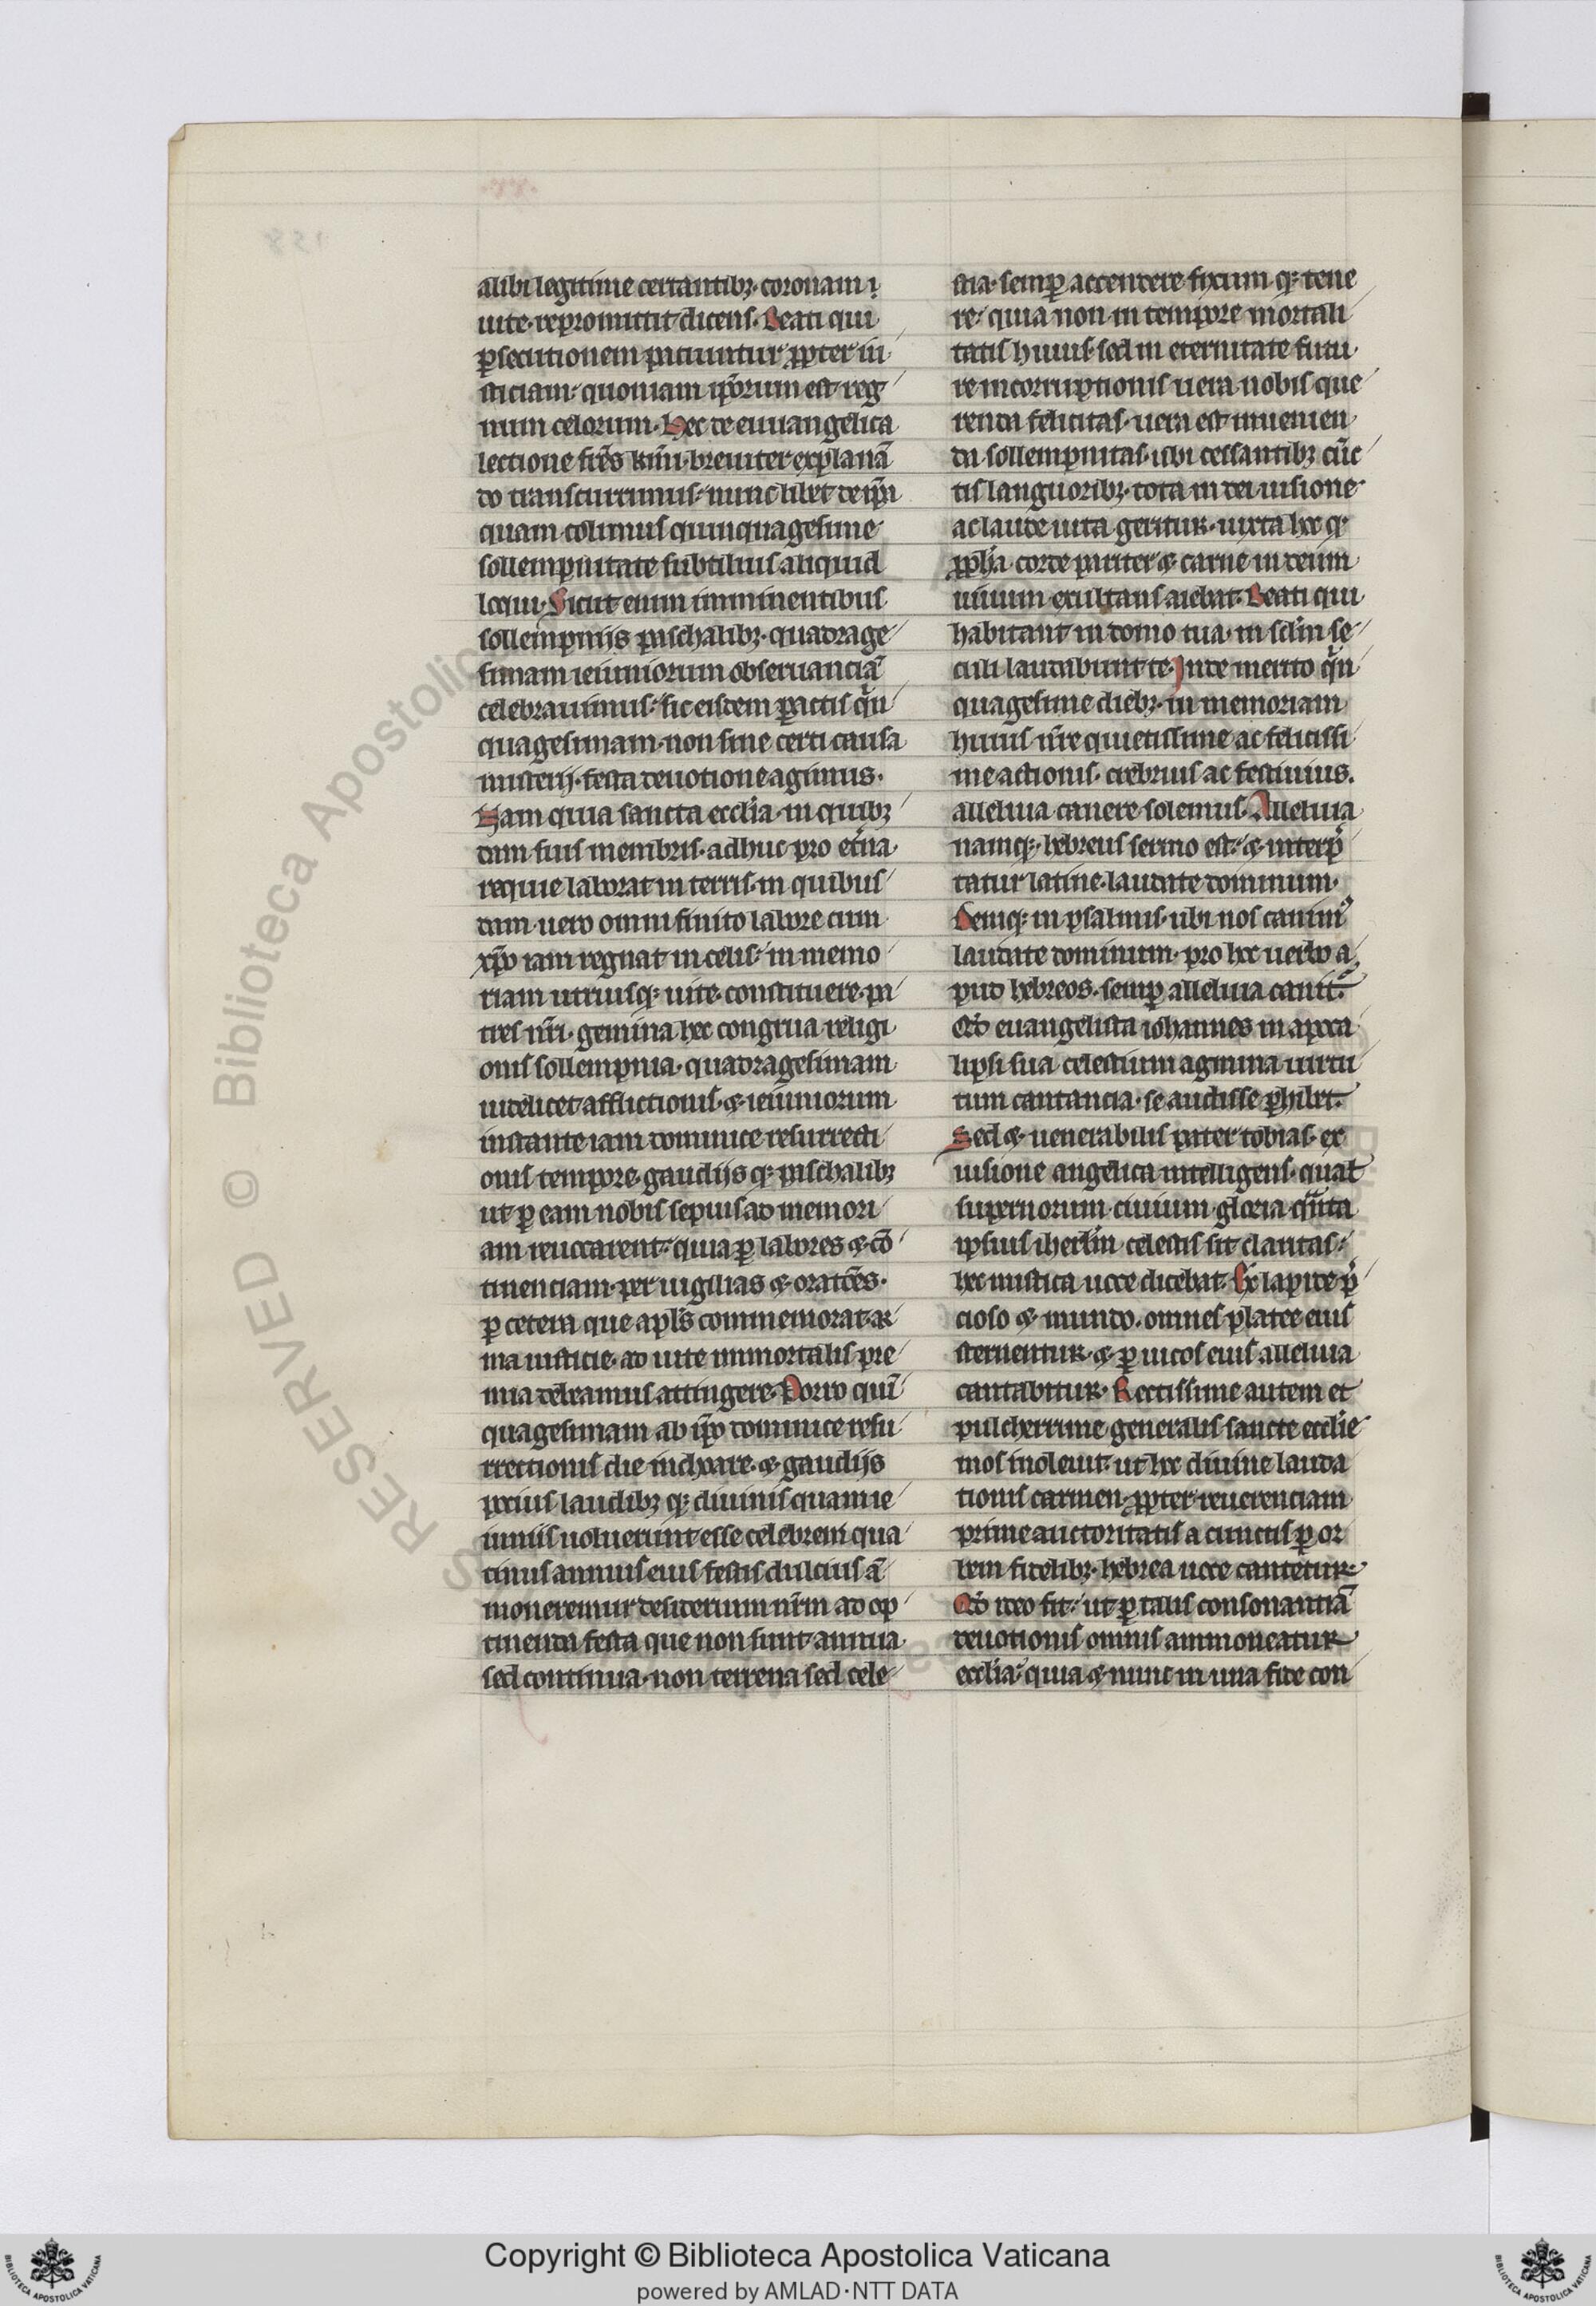 alibi legitime certantibꝫ· coronam i
uite· repromittit dicens· Beati qui
ꝑsecutionem patiuntur ꝓpter iu
sticiam· quoniam ip̄orum est reg
num celorum· Hec de euuangelica
lectione fr̄es km̄i· breuiter explanā
do transcurrimus· nunc libet de ip̄a
quam colimus quinquagesime
sollempnitate subtilius aliquid
loqui· Sicut enim imminentibus
sollempnijs paschalibꝫ· quadrage
simam ieiuniorum obseruanciā
celebrauimus· sic eisdem ꝑactis qͥn
quagesimam· non sine certi causa
misterij· festa deuotione agimus·
Nam quia sancta eccl̄ia· in quibꝫ
dam suis membris· adhuc pro et̄na
requie laborat in terris· in quibus
dam uero omni finito labore cum
xp̄o iam regnat in celis· in memo
riam utriusqꝫ uite· constituere· pa
tres nr̄i· gemina hec congrua religi
onis sollempnia· quadragesimam
uidelicet afflictionis· ⁊ ieiuniorum
instante iam dominice resurrecti
onis tempore· gaudijs qꝫ paschalibꝫ
ut ꝑ eam nobis sepius ad memori
am reuocarent· quia ꝑ labores ⁊ cō
tinenciam· per uigilias ⁊ orac̄ōes·
ꝑ cetera que apl̄s commemorat ar
ma iusticie· ad uite immortalis pre
mia debeamus attingere· Porro quī
quagesimam ab ip̄o dominice resu
rrectionis die inchoare· ⁊ gaudijs
pocius laudibꝫ qꝫ diuinis quam ie
iuniis uoluerunt esse celebrem qua
tinus annuis eius festis dulcius ā
moneremur desiderium nr̄m ad op
tinenda festa que non sunt annua
sed continua· non terrena sed cele
stia· semꝑ accendere fixum qꝫ tene
re· quia non in tempore mortali
tatis huius· sed in eternitate futu
re incorruptionis uera nobis que
renda felicitas· uera est inuenien
da sollempnitas· ubi cessantibꝫ cūc
tis languoribꝫ· tota in dei uisione
ac laude uita geritur· iuxta hoc qꝫ
ꝓph̄a· corde pariter ⁊ carne in deum
uiuum exultans aiebat· Beati qui
habitant in domo tua· in sclm̄ se
culi laudabunt te· Inde merito qͥn
quagesime diebꝫ· in memoriam
huius nr̄e quietissime ac felicissi
me actionis· crebrius ac festiuius·
alleluia canere solemus· Alleluia
namqꝫ· hebreus sermo est· ⁊ interp̄
tatur latine· laudate dominum·
Deniqꝫ in psalmis· ubi nos canimꝰ
laudate dominum· pro hoc uerbo a
pud hebreos· semꝑ alleluia canit᷑·
Qd̄ euangelista iohannes in apoca
lipsi sua celestium agmina uirtu
tum cantancia· se audisse ꝑhibet·
Sed ⁊ uenerabilis pater tobias· ex
uisione angelica intelligens· qualꝭ
supernorum ciuium gloria qͣnta
ipsius iherl̄m celestis sit claritas·
hec mistica uoce dicebat· Ex lapide p̄
cioso ⁊ mundo· omnes platee eius
sternentur· ⁊ ꝑ uicos eius alleluia
cantabitur· Rectissime autem et
pulcherrime generalis sancte eccl̄ie
mos inoleuit· ut hoc diuine lauda
tionis carmen· ꝓpter reuerenciam
prime auctoritatis a cunctis ꝑ or
bem fidelibꝫ· hebrea uoce cantetur·
Qd̄ ideo fit· ut ꝑ talis consonantiā
deuotionis omnis ammoneatur
eccl̄ia· quia ⁊ nunc in una fide con
Copyright © Biblioteca Apostolica Vaticana
powered by AMLAD·NTT DATA